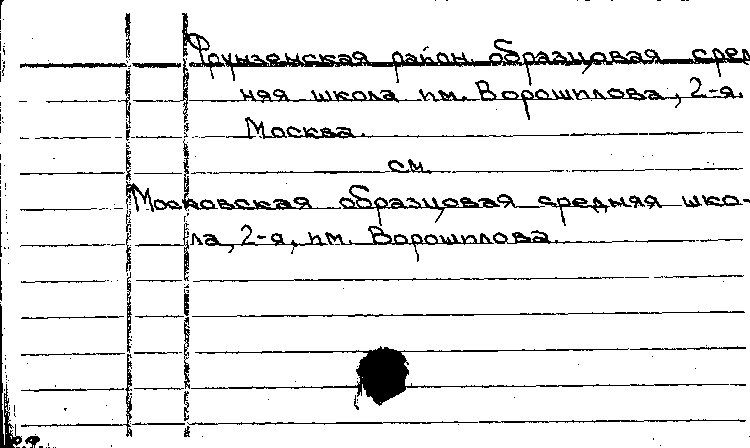 Фрунзенская район. образцовая сред
няя школа им. Ворошилова, 2-я.
Москва.
см.
Московская образцовая средняя шко-
ла, 2-я, им. Ворошилова.